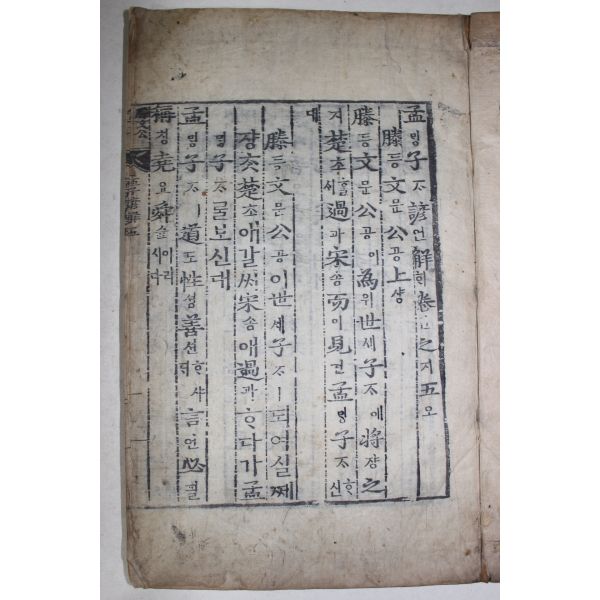 孟밍子ᄌᆞ諺언解ᄒᆡ卷권之지五오
滕등文문公공上샹
滕등文문公공이為위世셰子ᄌᆞ애將쟝之
지楚초ᄒᆞᆯ시過과宋송而이見견孟밍子ᄌᆞᄒᆞ신
대
滕등文문公공이世셰子ᄌᆞㅣ도여실ᄶᅢ
쟝ᄎᆞᆺ楚초애갈ᄊᆡ宋송애過과ᄒᆞ다가孟
밍子ᄌᆞᄅᆞᆯ보신대
孟밍子ᄌᆞㅣ道도性셩善션ᄒᆞ샤ᄃᆡ言언必필
稱칭堯요舜슌이러시다